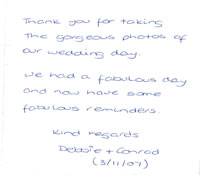 Thank you for taking
the gorgeous photos of
our wedding day.
We had a fabulous day
and now have some
fabulous reminders.
Kind regards
Debbie + Conrad
(3/11/07)